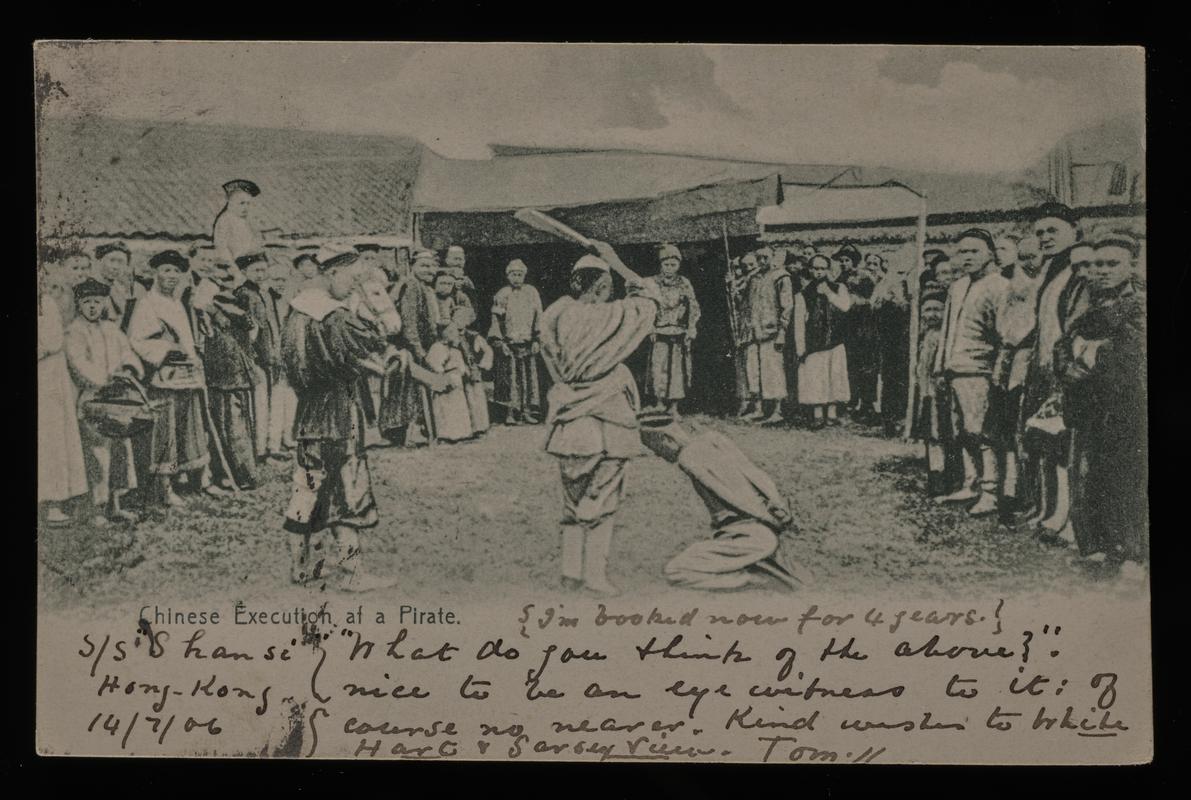 Chinese Execution af a Pirate.
{I'm booked now for 4 years.}
S/S "Shansi" } "What do you think of the above}".
Hong-Kong. { nice to be an eye witness to it: of
14/7/06 } course no nearer. Kind wishes to White
Hart & Garsey View. Tom.//